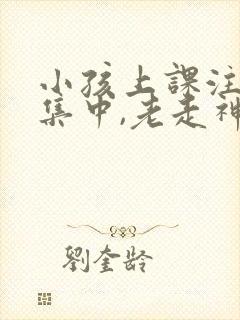 小孩上課注
集中,老走神
劉奎齡